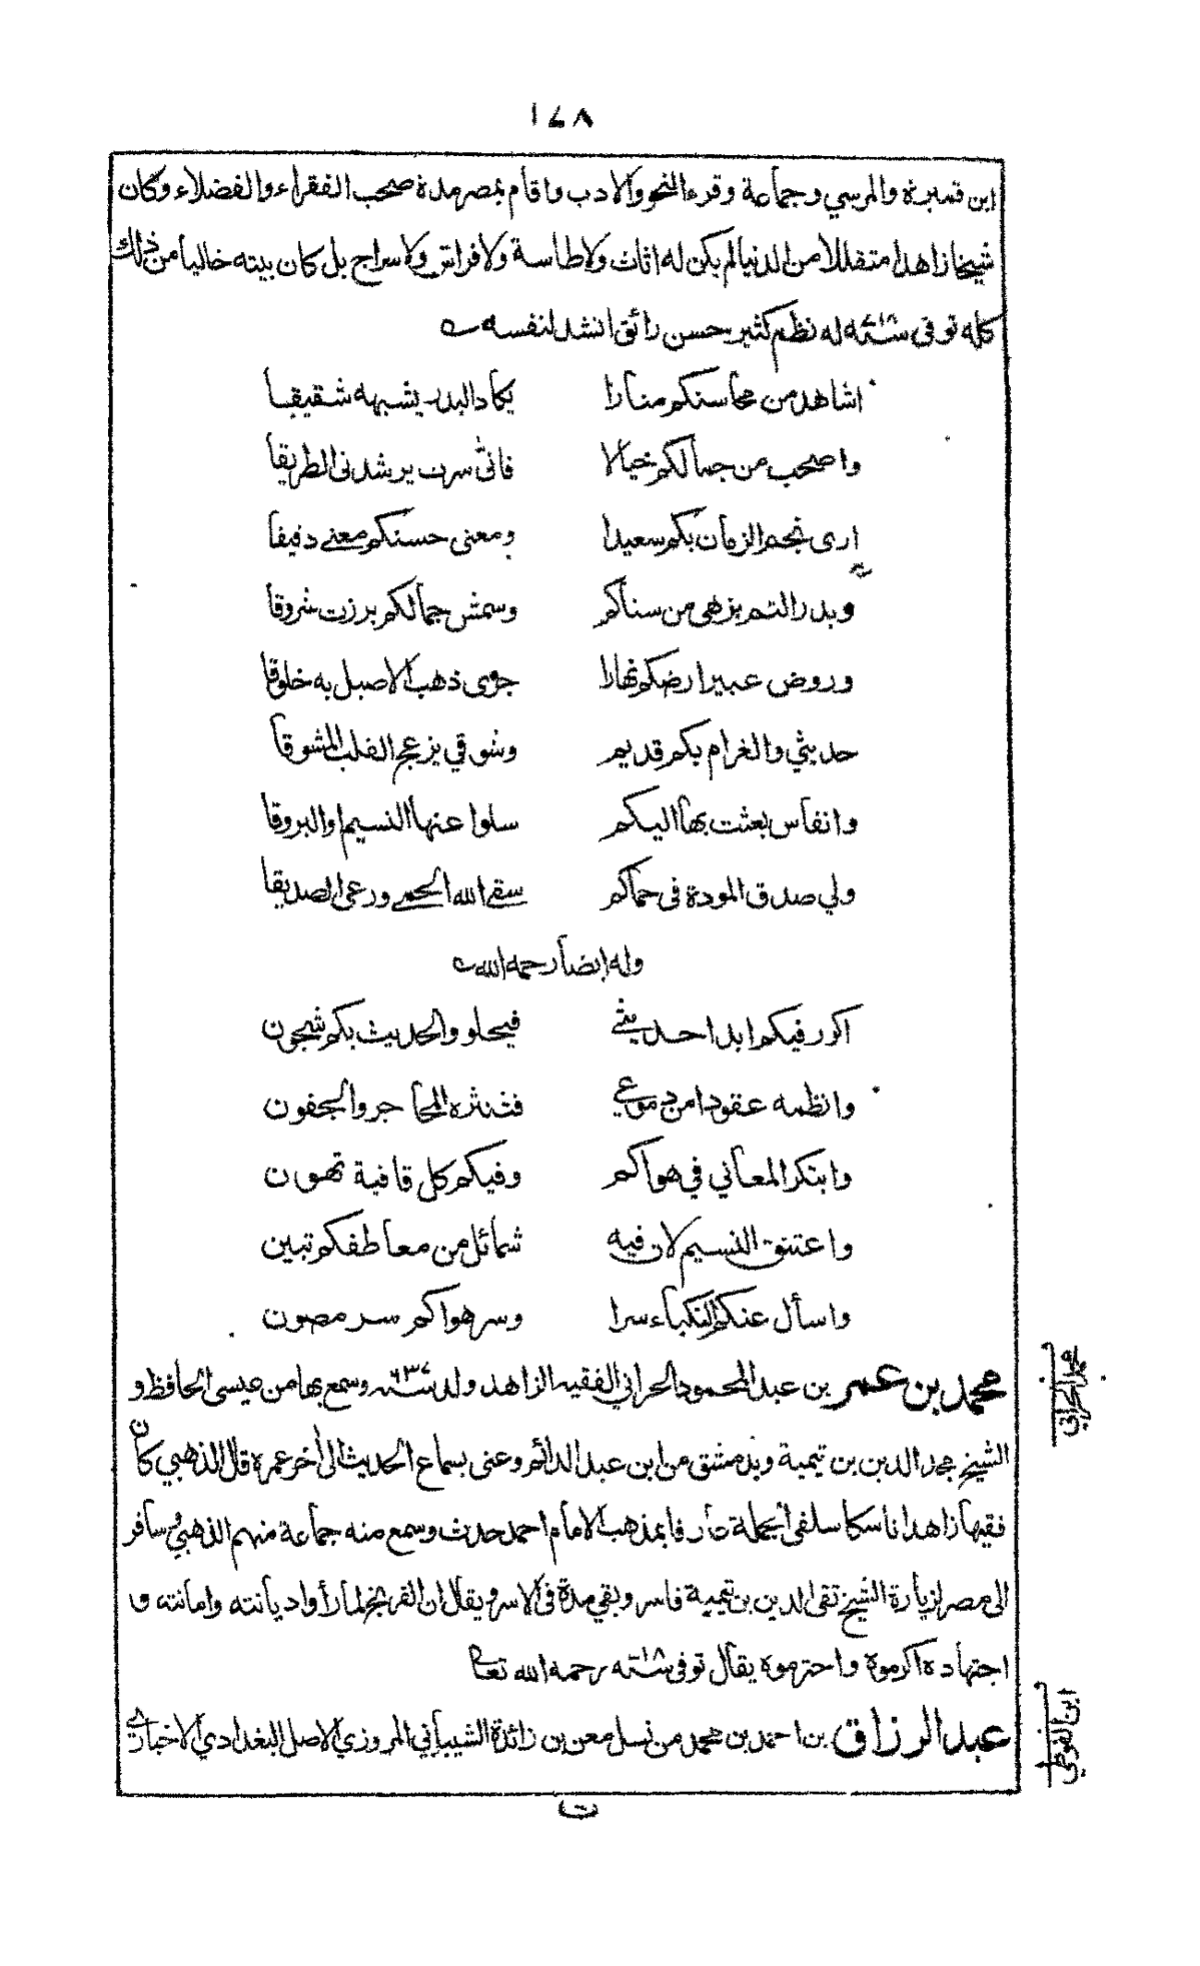 ١٤٨
ابن قميرة والمرسي وجماعة وقرء النحو والادب واقام بمصر مدة صحب الفقراء والفضلاء وكان
شيخا زاهدا متقللا من الدنيا لم يكن له اثاث ولا طاسة ولا فراش ولا سراج بل كان بيته خاليا من ذلك
كله توفى سنة له نظم كثير حسن رائق انشد لنفسه
اشاهد من محاسنكم منارا يكاد البدر يشبهه شقيقا
واصحب من جمالكم خيالا فانى سرت يرشدنى الطريقا
ارى نجم الزمان بكم سعيدا ومعنى حسنكم معنى دقيقا
وبدر التم يزهى من سناكم وشمس جمالكم برزت شروقا
وروض عبير ارضكم نهارا جرى ذهب الاصيل به خلوقا
حديثي والغرام بكم قديم وشوقي يزعج القلب المشوقا
وانفاس بعثت بها اليكم سلوا عنها النسيم او البروقا
ولي صدق المودة فى حماكم سقى الله الحمى ورعى الصديقا
وله ايضا رحمه الله
اكرر فيكم ابدا حديثى فيحلو والحديث بكم شجون
وانظمه عقودا من دموعي فتنثره المحاجر والجفون
وابتكر المعاني في هواكم وفيكم كل قافية تهون
واعتنق النسيم لان فيه شمائل من معاطفكم تبين
واسأل عنكم النكباء سرا وسر هواكم سر مصون
محمد بن عمر بن عبد المحمود الحراني الفقيه الزاهد ولد سنة ٦٣٧ وسمع بها من عيسى الحافظ و
الشيخ مجد الدين بن تيمية وبدمشق من ابن عبد الدائم وعنى بسماع الحديث الى أخر عمره قال الذهبي كان
فقيها زاهدا ناسكا سلفى الجملة عارفا بمذهب الامام احمد حدث وسمع منه جماعة منهم الذهبي وسافر
الى مصر لزيارة الشيخ تقى الدين بن تيمية فاسر وبقي مدة فى الاسر ويقال ان الفرنج لما رأوا ديانته وامانته و
اجتهاده اكرموه واحترموه يقال توفى سنة رحمه الله تعالى
عبد الرزاق بن احمد بن محمد من نسل معن بن زائدة الشيباني المروزي الاصل البغدادي الاخباري
محمد الحراني
ابن الفوطي